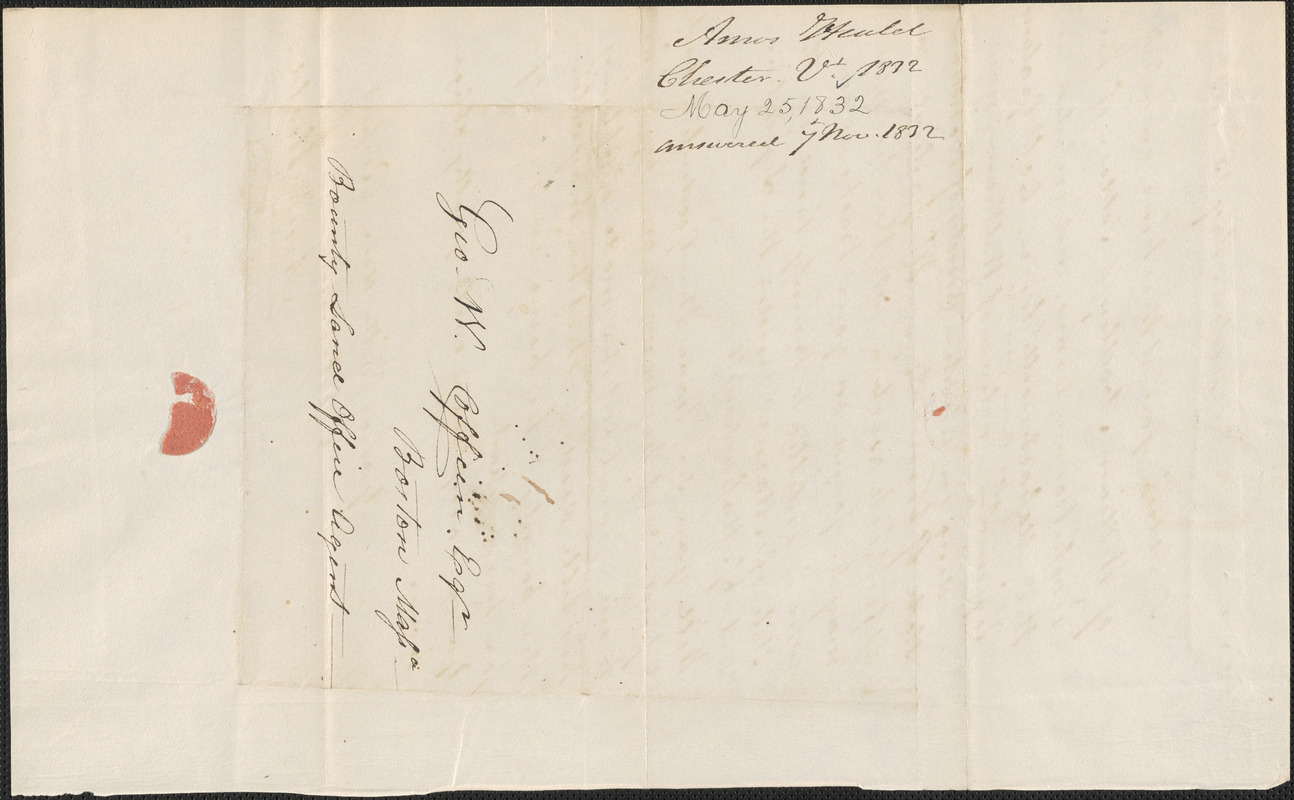 Amos Heald
Chester. Vt. 1832
May 25, 1832
answered 7 Nov. 1832
Geo. W. Coffin. Esqr
Boston Massa
Bounty Land Office Agent